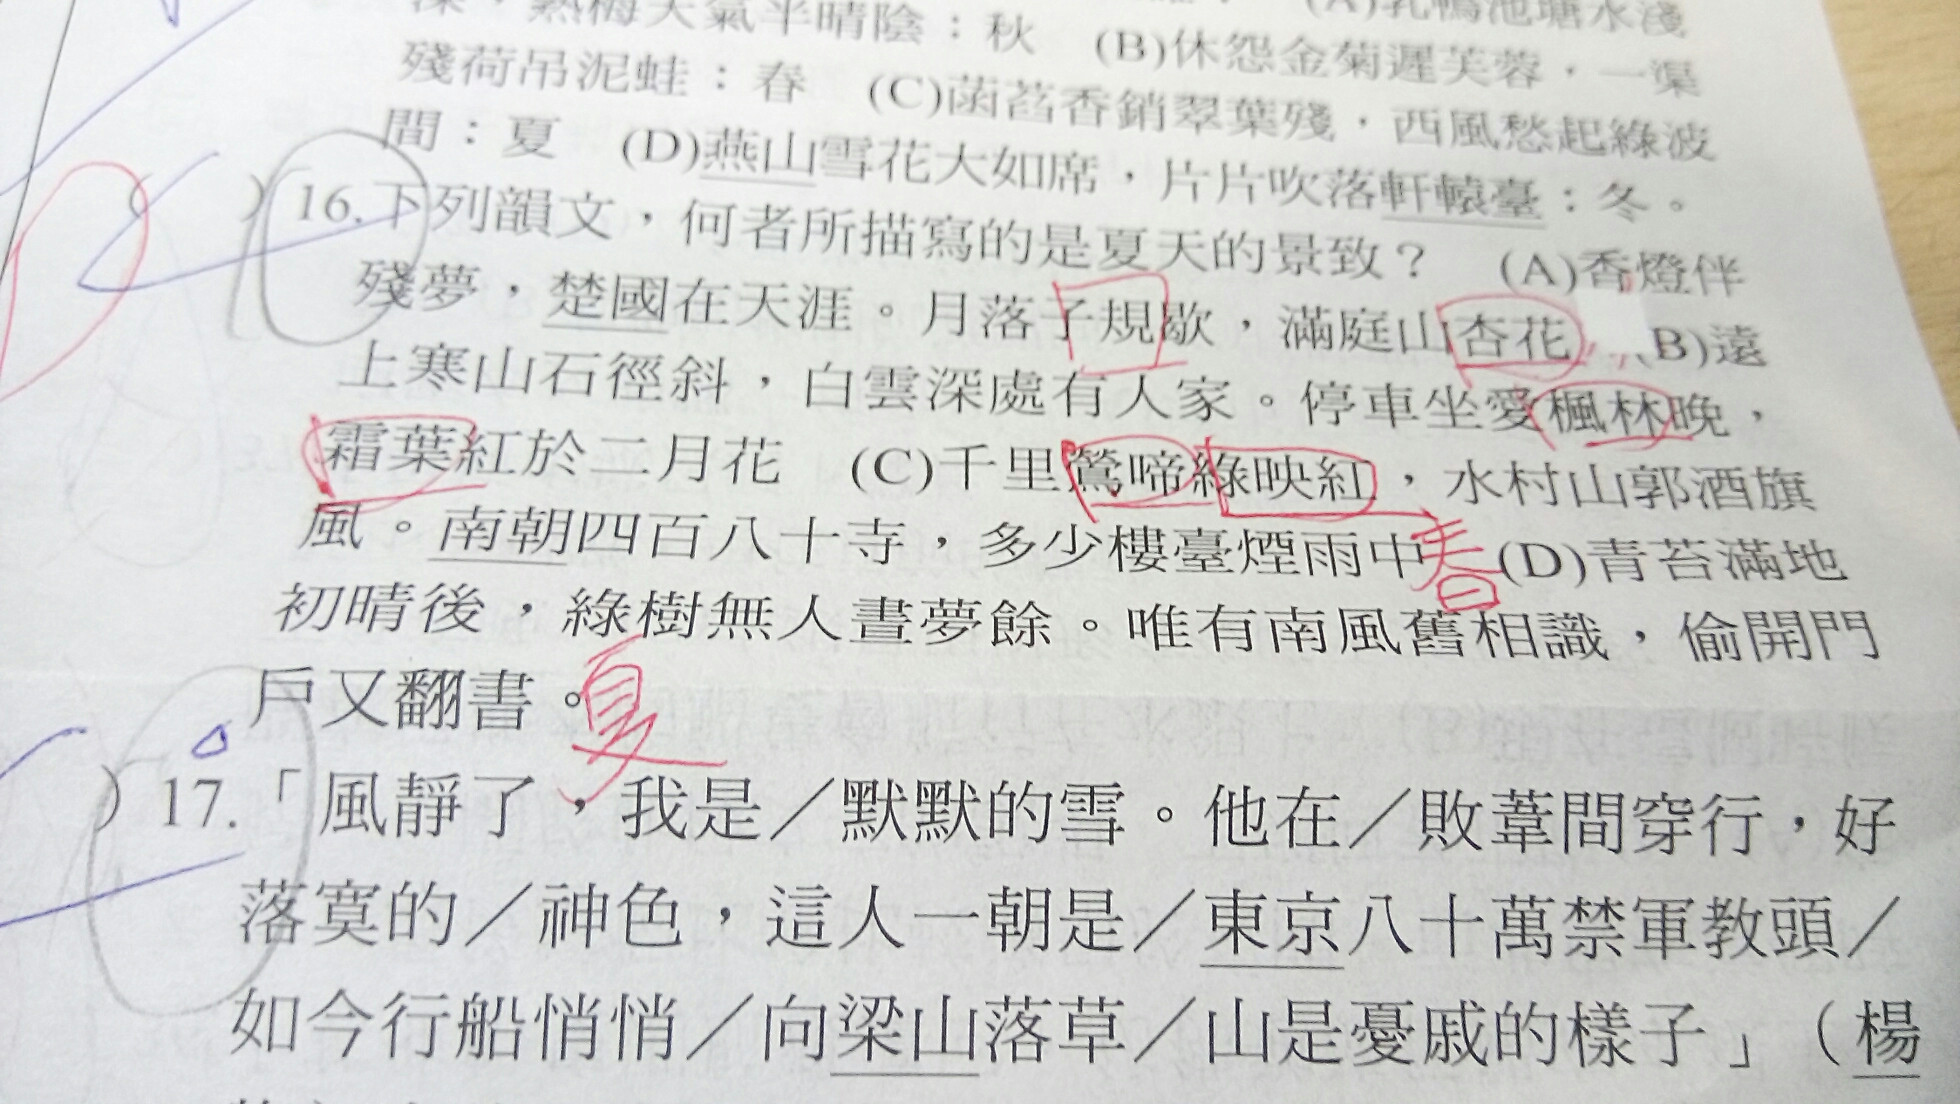 深，熟梅天氣半晴陰：秋　(B)休怨金菊遲芙蓉，一渠
(A)乳鴨池塘水淺
殘荷吊泥蛙：春　(C)菡萏香銷翠葉殘，西風愁起綠波
間：夏　(D)燕山雪花大如席，片片吹落軒轅臺：冬。
(　) 16.下列韻文，何者所描寫的是夏天的景致？　(A)香燈伴
殘夢，楚國在天涯。月落子規歇，滿庭山杏花　(B)遠
上寒山石徑斜，白雲深處有人家。停車坐愛楓林晚，
霜葉紅於二月花　(C)千里鶯啼綠映紅，水村山郭酒旗
風。南朝四百八十寺，多少樓臺煙雨中 春 (D)青苔滿地
初晴後，綠樹無人晝夢餘。唯有南風舊相識，偷開門
戶又翻書。夏
) 17.「風靜了，我是／默默的雪。他在／敗葦間穿行，好
落寞的／神色，這人一朝是／東京八十萬禁軍教頭／
如今行船悄悄／向梁山落草／山是憂戚的樣子」（楊